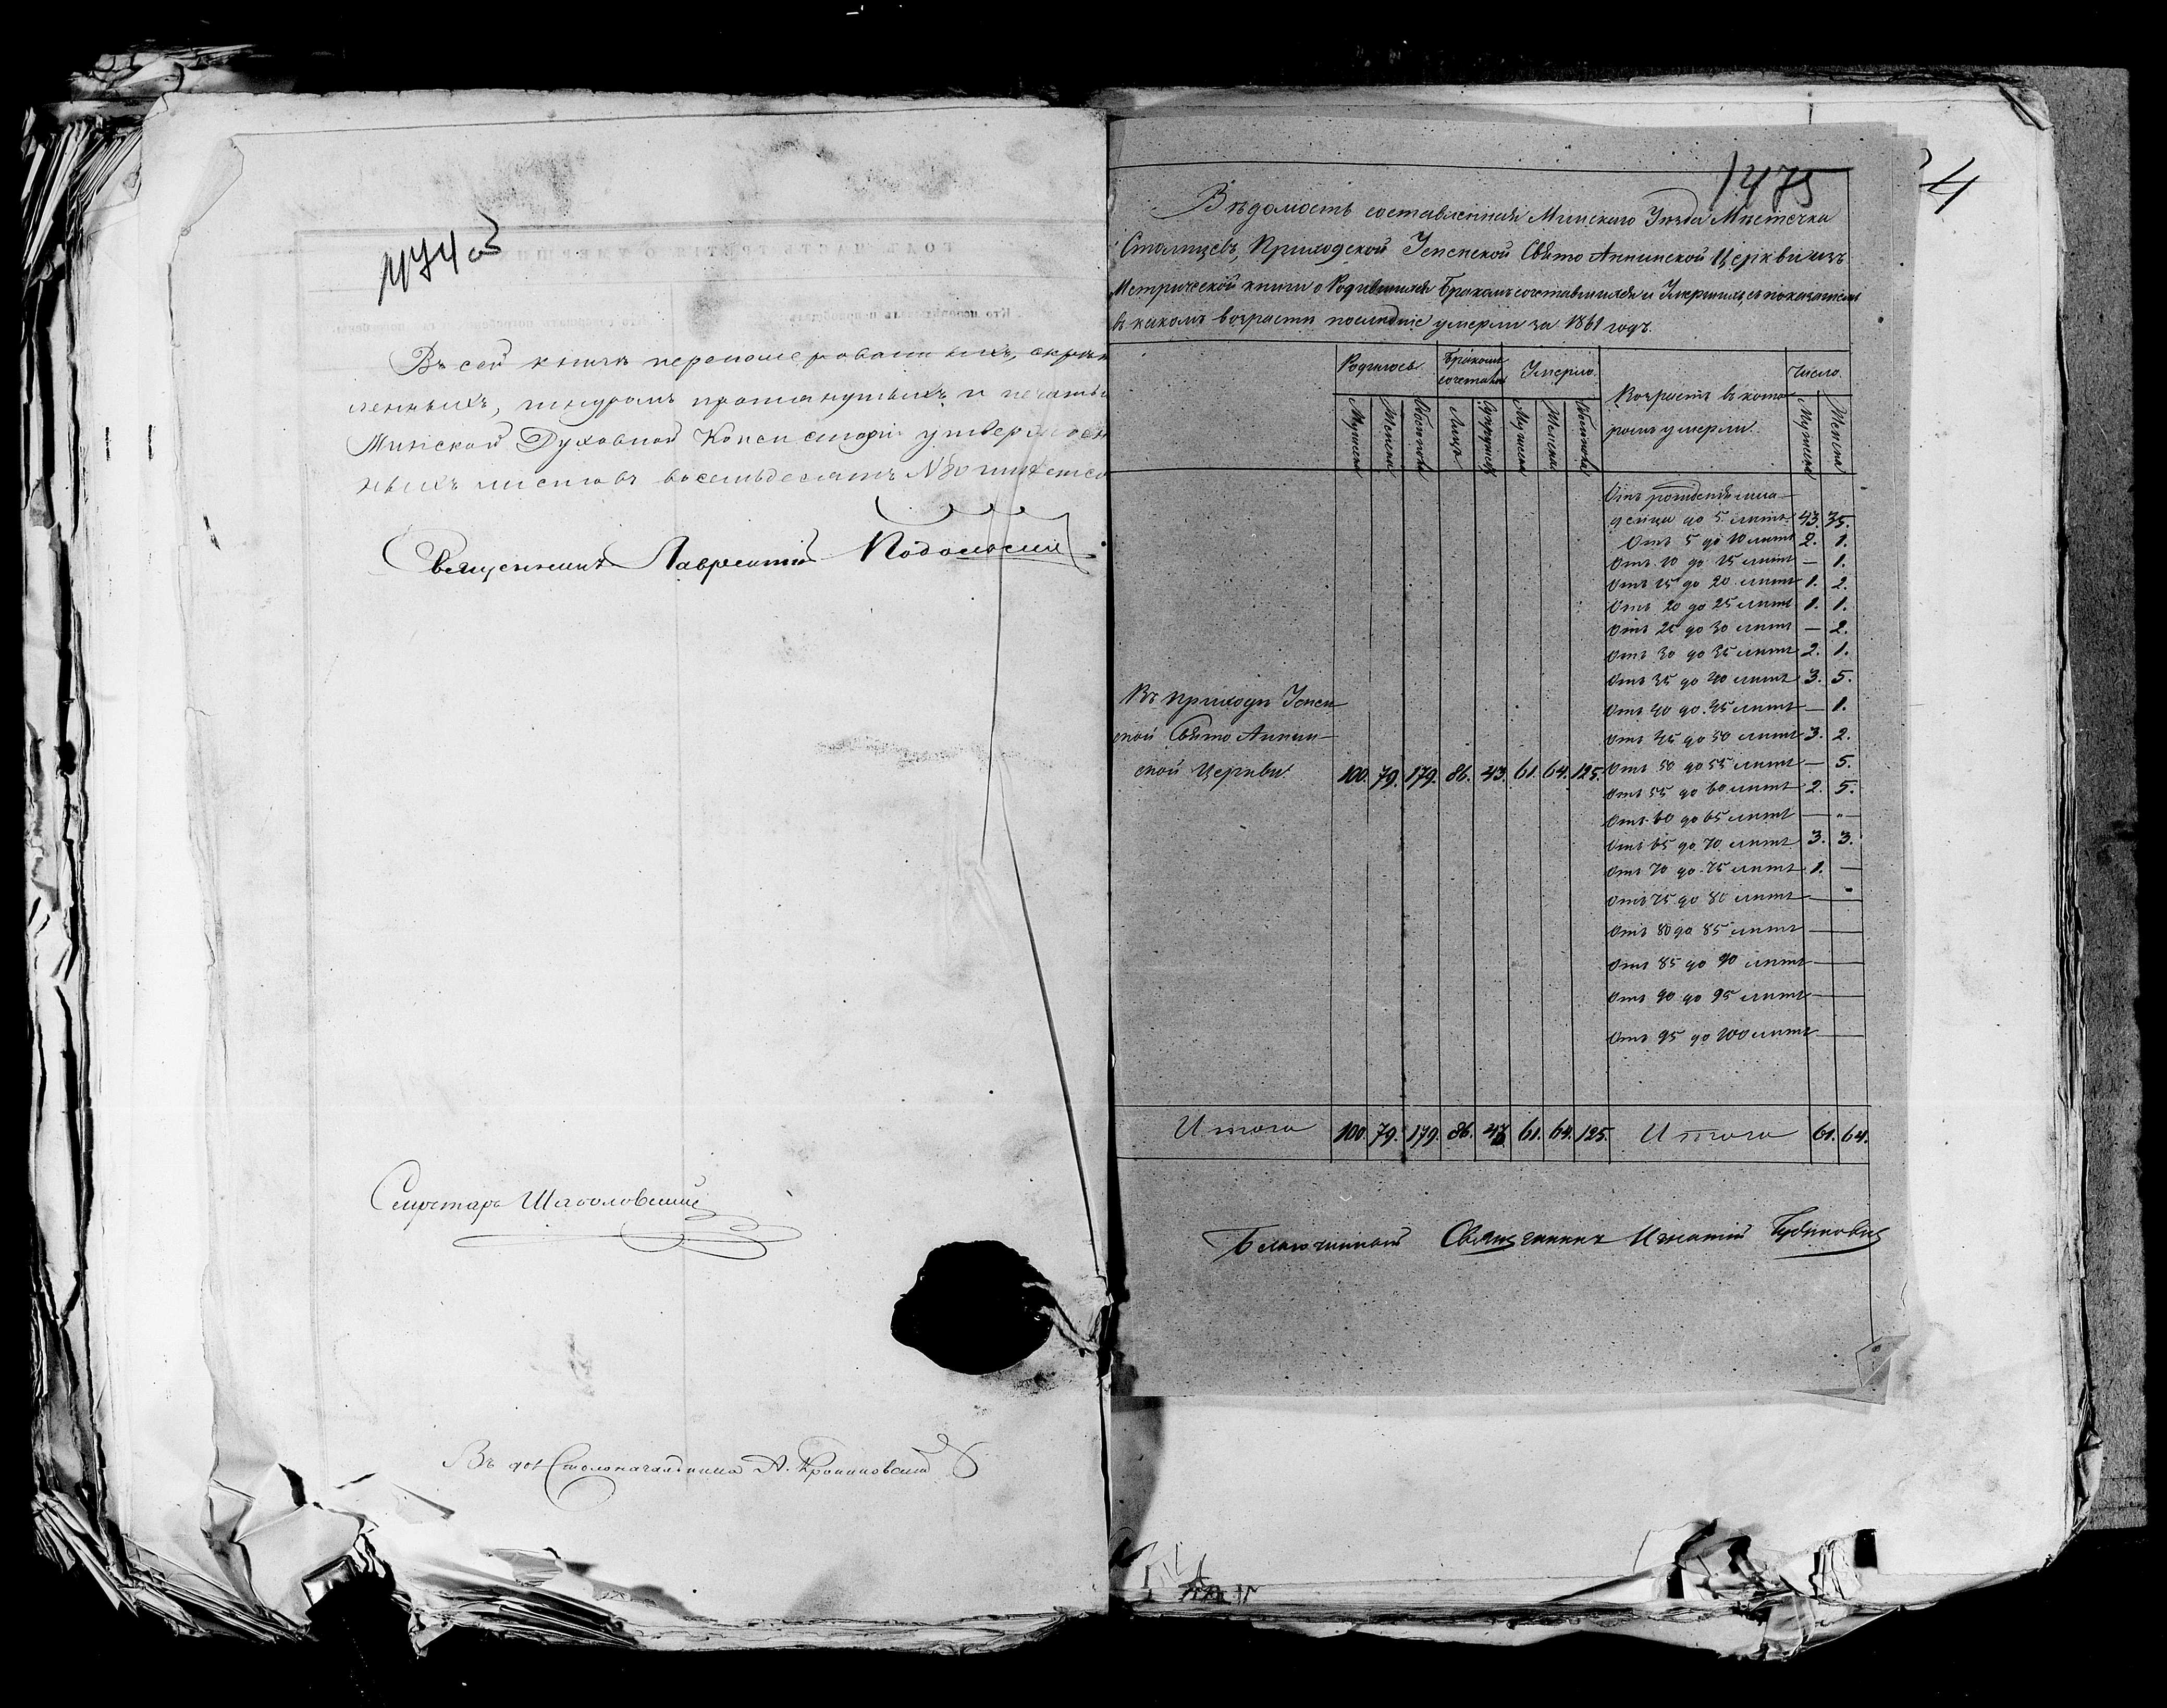 1474 об
Въ сей книгѣ перономерованныхъ, скрѣп
ленныхъ, шнуромъ протянутыхъ и печатью
Минской Духовной Консисторіи утвержден
ныхъ листовъ восемьдесятъ № 80 имѣется
Священникъ Лаврентій Подольскій
Секретарь Шаболовскій
Въ дол Столоначальника А.
1475
4
Вѣдомость составленная Минскаго Уѣзда Мѣстечка
Столпцевъ, Приходской Успенской Свято Аннинской Церкви изъ
Метрической книги о Родившихся Бракомъ сочетавшихся и Умершихъ съ показаніемъ
въ какомъ возрастѣ послѣдніе умерли за 1861 годъ.
Родилось Бракомъ сочетал Умерло Возрастъ въ кото- ромъ умерли. Число.
Мужеска Женска Обоего пола Лицъ Супружес Мужеска Женска Обоего пола Мужеска Женска
Отъ рожденія мла-
денцы до 5 лѣтъ 43. 35.
Отъ 5 до 10 лѣтъ 2. 1.
Отъ 10 до 15 лѣтъ — 1.
Отъ 15 до 20 лѣтъ 1. 2.
Отъ 20 до 25 лѣтъ 1. 1.
Отъ 25 до 30 лѣтъ — 2.
Отъ 30 до 35 лѣтъ 2. 1.
Отъ 35 до 40 лѣтъ 3. 5.
Отъ 40 до 45 лѣтъ — 1.
Отъ 45 до 50 лѣтъ 3. 2.
Отъ 50 до 55 лѣтъ — 5.
Отъ 55 до 60 лѣтъ 2. 5.
Отъ 60 до 65 лѣтъ — —
Отъ 65 до 70 лѣтъ 3. 3.
Отъ 70 до 75 лѣтъ 1. —
Отъ 75 до 80 лѣтъ — —
Отъ 80 до 85 лѣтъ — —
Отъ 85 до 90 лѣтъ — —
Отъ 90 до 95 лѣтъ — —
Отъ 95 до 100 лѣтъ — —
Въ приходѣ Успен
ской Свято Аннин-
ской Церкви 100. 79. 179. 86. 43. 61. 64. 125.
Итого 100 79. 179. 86. 43 61. 64. 125. Итого 61. 64.
Благочинный Священникъ Игнатій